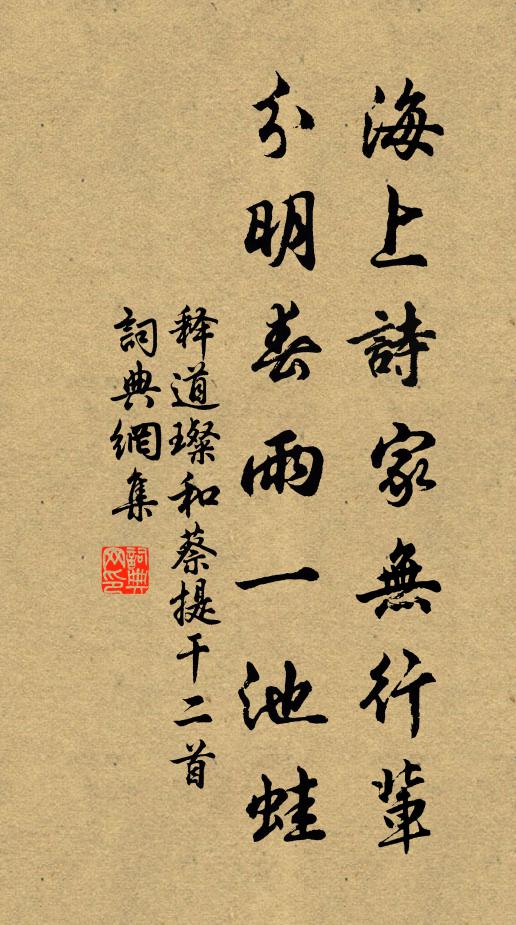 海上詩家無行輩
分明春雨一池蛙
释道璨和蔡提干二首
詞典網集
詞典
网印